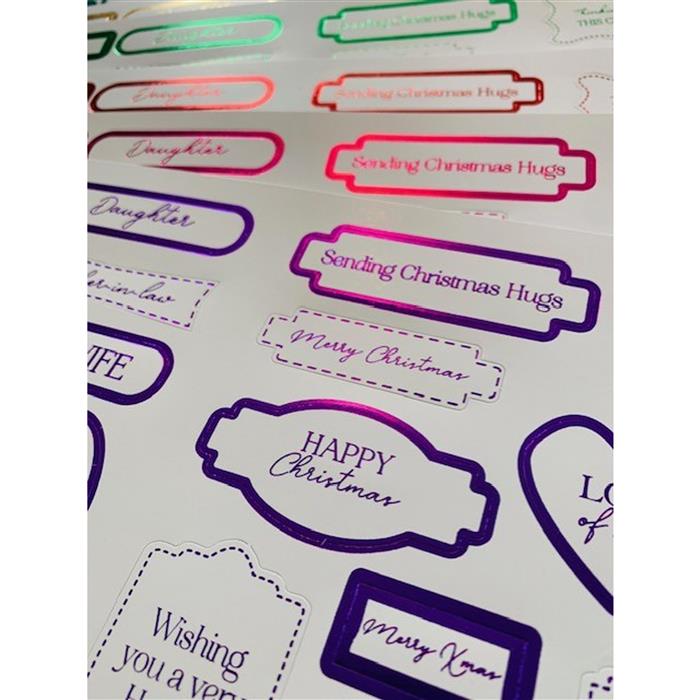 Daughter
Sending Christmas Hugs
THIS C
Daughter
Sending Christmas Hugs
Daughter
Sending Christmas Hugs
Daughter
Sending Christmas Hugs
er-in-law
Merry Christmas
IFE
HAPPY
Christmas
LO
of
Wishing
you a very
Merry Xmas